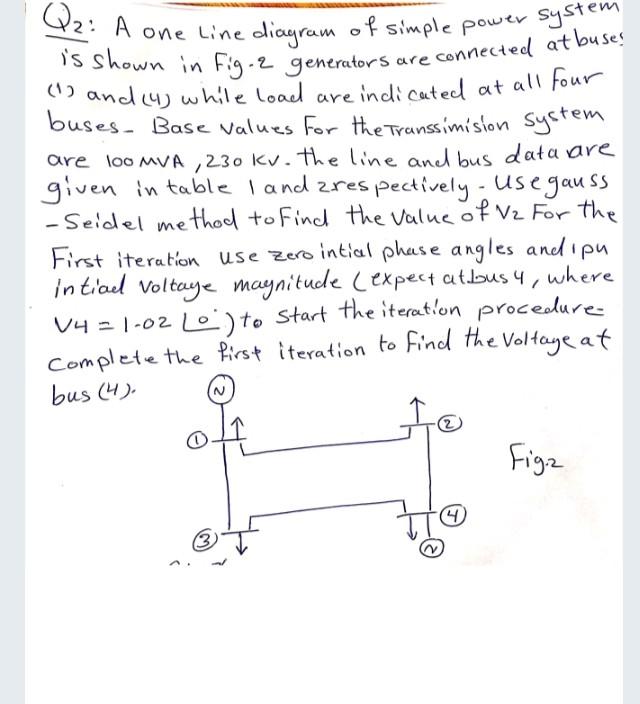 Q2: A one Line diagram of simple power system
is shown in Fig-2 generators are connected at buses
(1) and (4) while load are indicated at all four
buses- Base values For the Transsimision system
are 100 MVA, 230 KV. the line and bus data are
given in table 1 and 2 respectively. Use gauss
-Seidel method to Find the value of V2 For the
First iteration use zero intial phase angles and 1pu
intiad voltaye magnitude (expect at bus 4, where
V4 = 1.02 L0°) to start the iteration procedure-
Complete the first iteration to find the voltage at
bus (4).
N
1
2
Fig.2
3
4
N